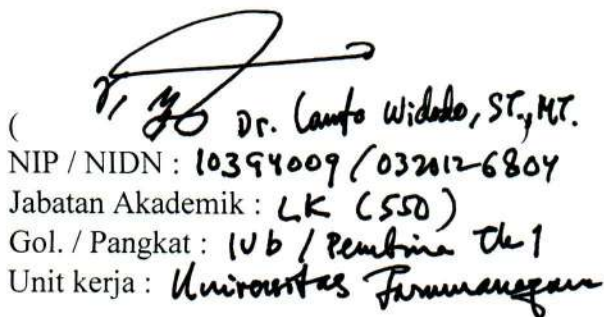 ( Dr. Lamto Widodo, ST., MT.
NIP / NIDN : 10394009 / 032012-6804
Jabatan Akademik : LK (550)
Gol. / Pangkat : IVb / Pembina Tk 1
Unit kerja : Universitas Tarumanagara